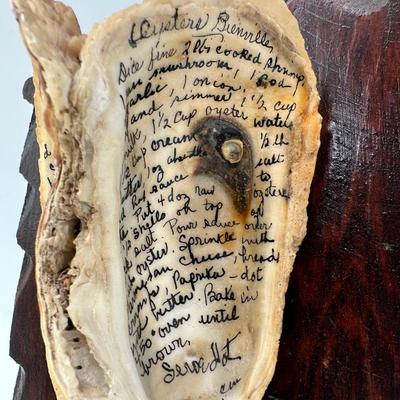 Oysters Bienville
Dice fine 2 lbs cooked shrimp,
mushroom, 1 pod
garlic, 1 onion,
and simmer 1 1/2 cup
1 1/2 cup oyster water
cup cream 1/2 lb
salt to
sauce oysters
Put 4 doz raw
shells on top of
salt Pour sauce over
oyster. Sprinkle with
cheese, bread
Paprika - dot
butter. Bake in
oven until
brown.
Serve Hot